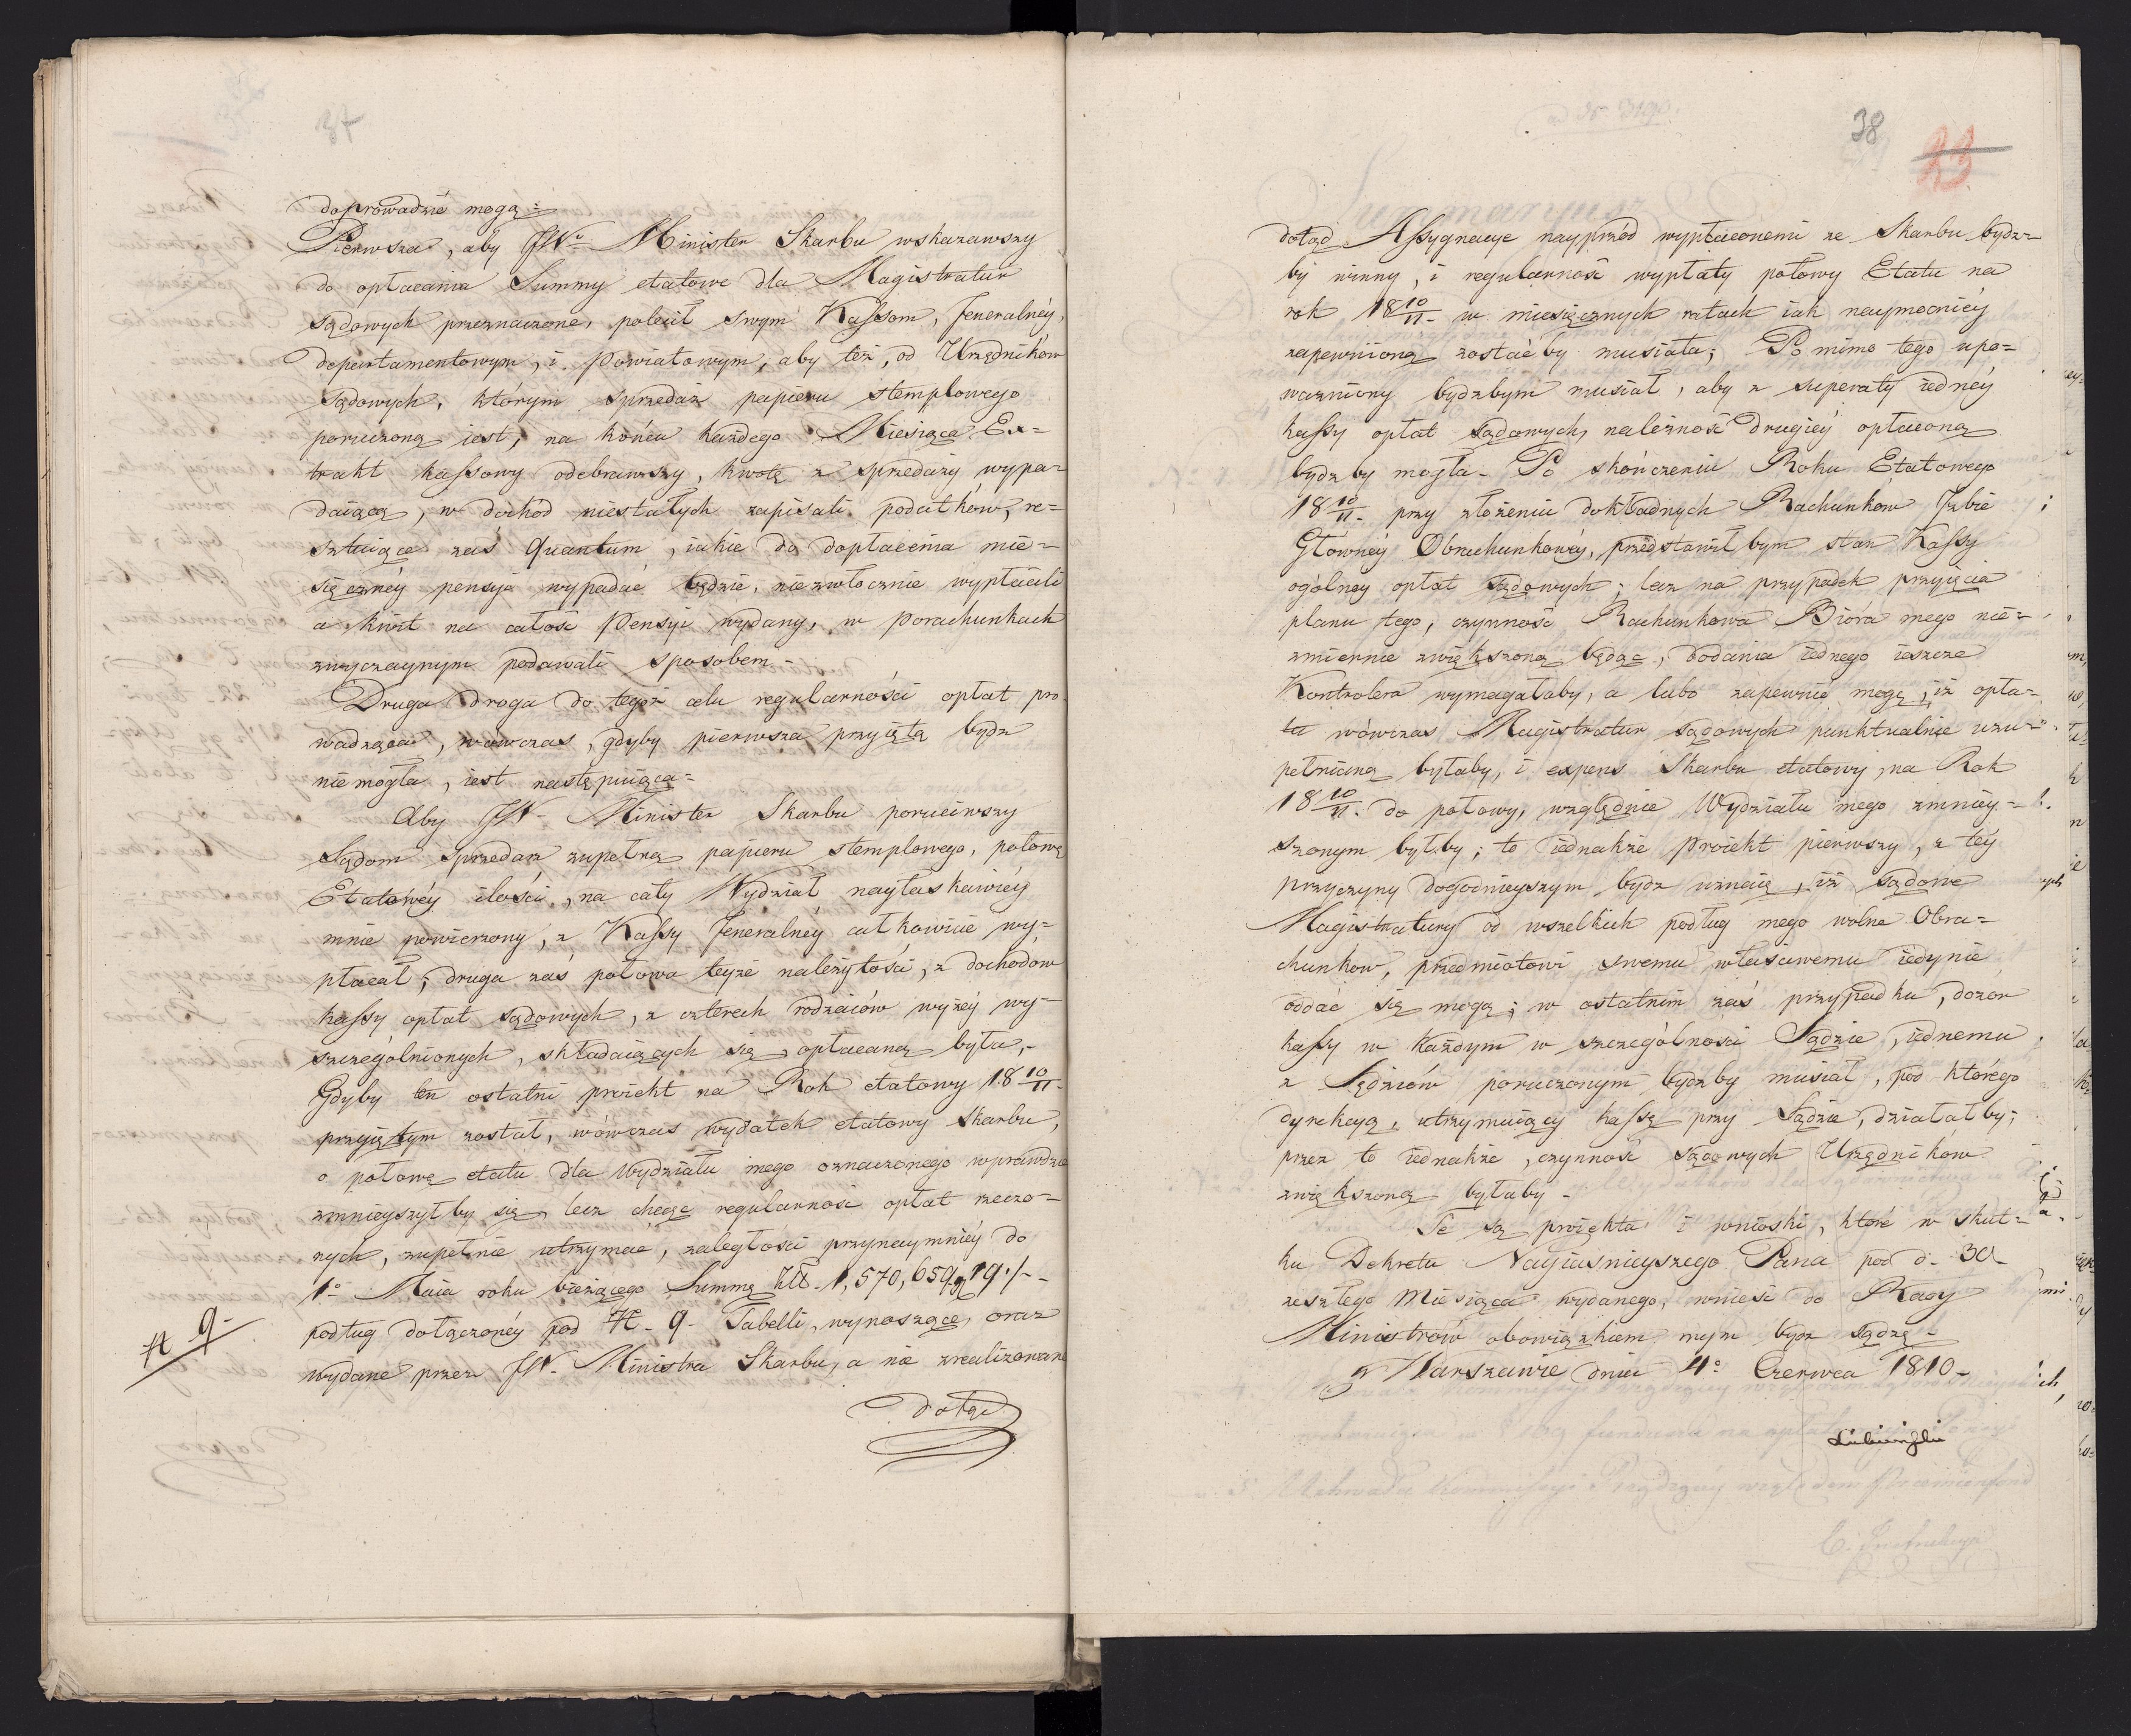 37
doprowadzić mogą:
Pierwsza, aby JW. Minister Skarbu wskazawszy
do opłacania Summy etatowe dla Magistratur
sądowych przeznaczone, polecił swym Kassom, Jeneralnéy,
departamentowym, i Powiatowym, aby też, od Urzędników
Sądowych, którym sprzedaż papieru stemplowego
poruczoną iest, na końcu każdego Miesiąca Ex=
trakt kassowy odebrawszy, kwotę z sprzedaży wypa=
daiącą, w dochód niestałych zapisali podatków, re=
sztuiące zaś Quantum, iakie do dopłacenia mie=
sięcznéy pensyi wypadać będzie, niezwłocznie wypłacili
a kwit na całość Pensyi wydany, w porachunkach
zwyczaynym podawali sposobem-
Druga droga do tegoż celu regularności opłat pro
wadząca, wówczas, gdyby pierwsza przyiętą bydź
niemogła, iest następuiąca=
Aby JW- Minister Skarbu poruciwszy
Sądom sprzedaż zupełną papieru stemplowego, połowę
Etatowéy ilości, na cały Wydział nayłaskawiéy
mnie powierzony, z Kassy Jeneralnéy całkowicie wy=
płacał; druga zaś połowa teyże należytości, z dochodów
kassy opłat sądowych, z czterech rodzaiów wyżéy wy=
szczególnionych, składaiących się, opłacaną była,-
Gdyby ten ostatni proiekt na Rok etatowy 18 10/11-
przyiętym został, wówczas wydatek etatowy Skarbu,
o połowę etatu dla Wydziału mego oznaczonego wprawdzie
zmnieyszyłby się, lecz chcąc regularność opłat rzeczo=
nych, zupełnie utrzymać, zaległości przynaymniéy do
1o Maia roku bieżącego Summę Złł- 1,570,659 g 19./.-
№ 9- podług dołączonéy pod № 9- Tabelli, wynoszące, oraz
wydane przez JW- Ministra Skarbu, a nie zrealizowane
dotąd
38
23
dotąd Assygnacye nayprzód wypłaconemi ze Skarbu bydź=
by winny, i regularność wypłaty połowy Etatu na
rok 18 10/11- w miesięcznych ratach iak naymocniéy
zapewnioną zostaćby musiała; Po mimo tego upo=
ważniony bydźbym musiał, aby z superaty iednéy
kassy opłat sądowych, należność drugiéy opłaconą
bydź by mogła- Po skończeniu Roku Etatowego
18 10/11- przy złożeniu dokładnych Rachunkow Jzbie
Głównéy Obrachunkowéy, przedstawił bym stan Kassy
ogólney opłat sądowych; lecz na przypadek przyięcia
planu tego, czynność Rachunkowa Bióra mego nie=
zmiernie zwiększoną będąc, dodania iednego ieszcze
Kontrolera wymagałaby, a lubo zapewnić mogę, iż opła=
ta wówczas Magistratur sądowych punktualnie uzu=
pełnianą byłaby, i expens Skarbu etatowy, na Rok
18 10/11. do połowy, względnie Wydziału mego zmniéy=
szonym byłby; to iednakże proiekt pierwszy, z téy
przyczyny dogodnieyszym bydź uznaię, iż sądowe
Magistratury od wszelkich podług mego wolne Obra=
chunkow, przedmiotowi swemu właściwemu iedynie
oddać się mogą; w ostatnim zaś przypadku, dozor
kassy w każdym w szczególności Sądzie, iednemu
z Sędziów poruczonym bydźby musiał, pod którego
dyrekcyą, utrzymuiący kassę przy Sądzie, działałby;
przez to iednakże, czynność sądowych Urzędników
zwiększoną byłaby-
Te są proiekta i wnioski, które w skut=
ku Dekretu Nayiaśnieyszego Pana pod d- 30-
zeszłego Miesiąca wydanego, wnieść do Rady
Ministrów obowiązkiem mym bydź sądzę-
w Warszawie dnia 4o Czerwca 1810-
Łubieński